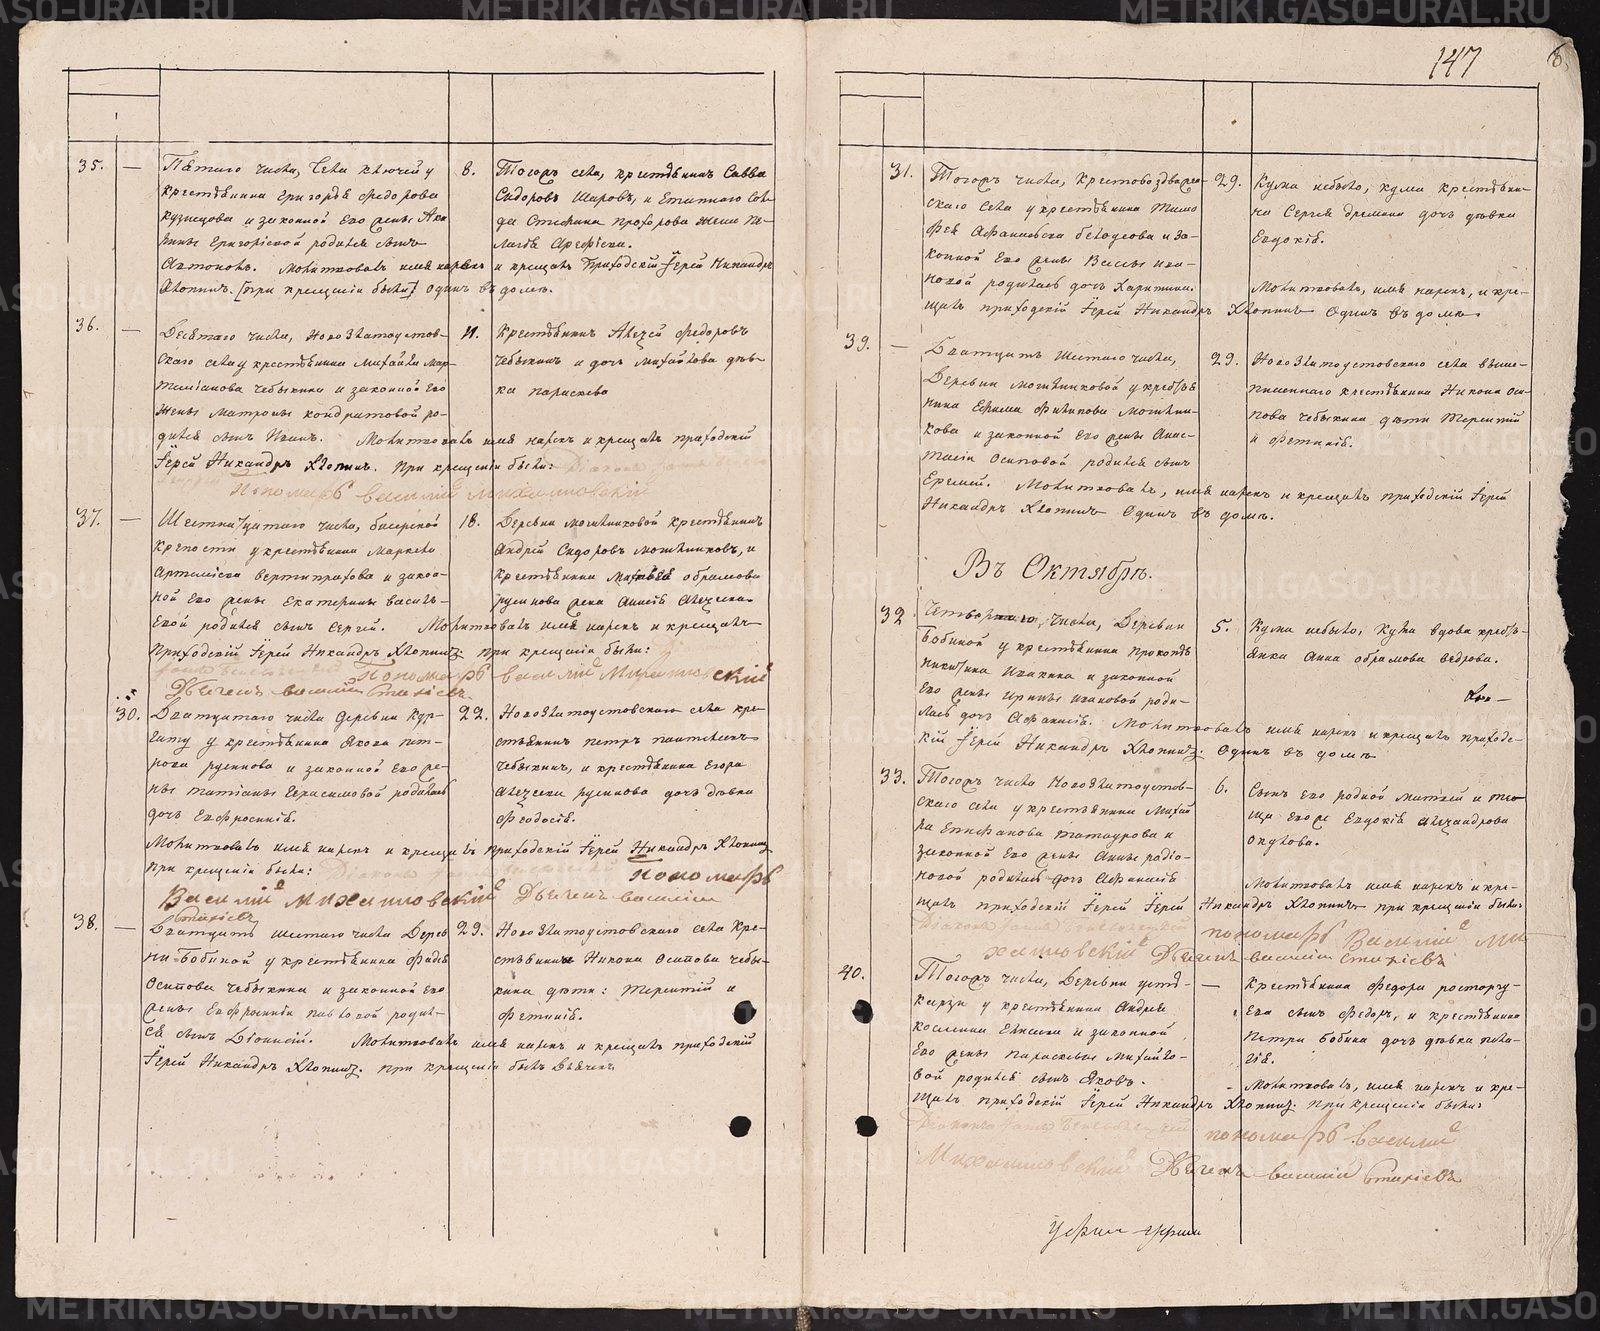 147
35. — Пятаго числа, Села Ключей у
крестьянина Григорья Федорова
Кузнецова и законной Его жены Аку
лины Григорьевой родился сынъ
Автономъ. Молитвовалъ имя нарекъ и крещалъ Приходскій Іерей Никандръ
Хлопинъ. [при крещеніи были] Одинъ въ домѣ.
8. Тогожъ села, крестьянинъ Савва
Сидоровъ Шаровъ, и Етапнаго Сол-
да Стефана Прохорова жена Пе-
лагея Арефьева.
36. — Десятаго числа, Новозлатоустов-
скаго села у крестьянина Михайла Мар-
тиміанова Чебыкина и законной Его
жены Матроны Кондратовой ро-
дился сынъ Иванъ. Молитвовалъ имя нарекъ и крещалъ приходскій
Іерей Никандръ Хлопинъ. При крещеніи были:
Пономарь Василій Михайловскій
11. Крестьянинъ Алексѣй Федоровъ
Чебыкинъ и дочь Михайлова дѣв-
ка Параскева
37. — Шестнадцатаго числа, Бисерской
Крепости у крестьянина Маркела
Артемьева Вертипрахова и закон-
ной Его жены Екатерины Василь-
евой родился сынъ Сергѣй. Молитвовалъ имя нарекъ и крещалъ
Приходскій Іерей Никандръ Хлопинъ при крещеніи были:
Пономарь Василій Михайловскій
Дьячекъ Василій
18. Деревни Могильниковой крестьянинъ
Андрей Сидоровъ Могильниковъ, и
крестьянина Матвѣя Обрамова
Русинова жена Анисія Алексѣева.
30. Двадцатаго числа деревни Кур-
гату у крестьянина Якова Пет-
рова Русинова и законной Его же-
ны Татіаны Герасимовой родилась
дочь Евфросинія.
Молитвовалъ имя нарекъ и крещалъ приходскій Іерей Никандръ Хлопинъ
При крещеніи были: Пономарь
Василій Михайловскій Дьячекъ Василій
22. Новозлатоустовскаго села кре-
стьянинъ Петръ Пантелеевъ
Чебыкинъ, и крестьянина Егора
Алексѣева Русинова дочь дѣвка
Феодосія.
38. — Двадцать шестаго числа Дерев
ни Бобиной у крестьянина Фадея
Осипова Чебыкина и законной Его
жены Евфросиніи Павловой родил-
ся сынъ Діонисій. Молитвовалъ имя нарекъ и крещалъ приходскій
Іерей Никандръ Хлопинъ. При крещеніи былъ Дьячекъ
29. Новозлатоустовскаго села Кре-
стьянина Никона Осипова Чебы-
кина дѣти: Терентій и
Фетинія.
31. Тогожъ числа, Крестовоздвижен-
скаго села у крестьянина Тимо
фея Афанасьева и за-
конной Его жены Васы Ива-
новой родилась дочь Харитина.
щалъ приходскій Іерей Никандръ Хлопинъ Одинъ въ домѣ.
29. Кума небыло, кума крестьяни-
на Сергея дочь дѣвка
Евдокія.
Молитвовалъ, имя нарекъ, и кре-
39. — Двадцать шестаго числа,
Деревни Могильниковой у крестья
нина Ефима Филипова Могильни-
кова и законной Его жены Анас-
тасіи Осиповой родился сынъ
Еремей. Молитвовалъ, имя нарекъ и крещалъ приходскій Іерей
Никандръ Хлопинъ Одинъ въ домѣ.
29. Новозлатоустовскаго села выше-
писаннаго крестьянина Никона Оси-
пова Чебыкина дѣти Терентій
и Фетинія.
Въ Октябрѣ.
32. Четвертаго числа, Деревни
Бобиной у крестьянина Прокопья
Никитина Иванина и законной
Его жены Ирины Ивановой роди-
лась дочь Афанасія. Молитвовалъ имя нарекъ и крещалъ приходс-
кій Іерей Никандръ Хлопинъ. Одинъ въ домѣ
5. Кума небыло, кума вдова кресть-
янка Анна Обрамова Ведрова.
33. Тогожъ числа Новозлатоустов-
скаго села у крестьянина Михай
ла Епифанова Татаурова и
законной Его жены Анны Родіо-
новой родилась дочь Афанасія
щалъ приходскій Іерей Іерей Никандръ Хлопинъ при крещеніи были:
пономарь Василій Ми-
хайловскій Дьячекъ Василій
6. Сынъ его родной Матвей и тео
ща Евдокія Александрова
Молитвовалъ имя нарекъ и кре-
40. Тогожъ числа, Деревни Усть-
Карзи у крестьянина Андрея
и законной
Его жены Параскевы Михайло-
вой родился сынъ Яковъ.
щалъ приходскій Іерей Никандръ Хлопинъ. При крещеніи были:
пономарь Василій
Михайловскій Дьячекъ Василій
— Крестьянина Федора Росторгу-
ева сынъ Федоръ, и крестьянина
Петра Бобина дочь дѣвка Пела-
гія.
Молитвовалъ, имя нарекъ и кре-